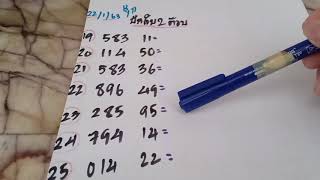 22/1/63 ปักสิบ 2 ตัวบน
19 583 11=
20 114 50=
21 583 36=
22 896 49=
23 285 95=
24 794 14=
25 014 22=